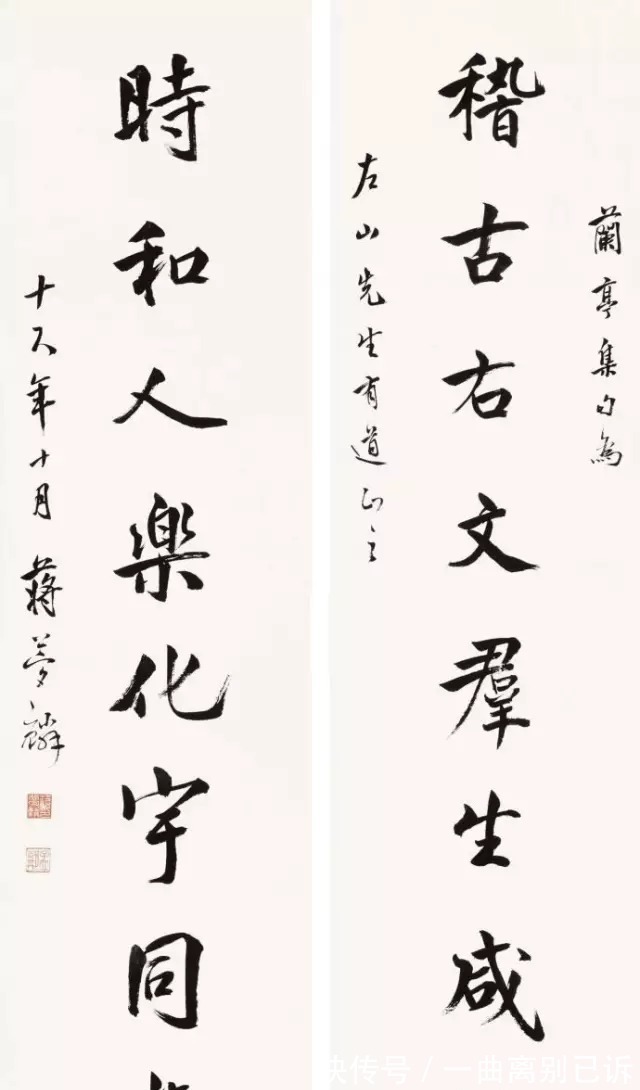 蘭亭集句為
稽古右文羣生咸
左山先生有道正之
時和人楽化宇同
十八年十月蔣夢麟
快传号 / 一曲离别已诉